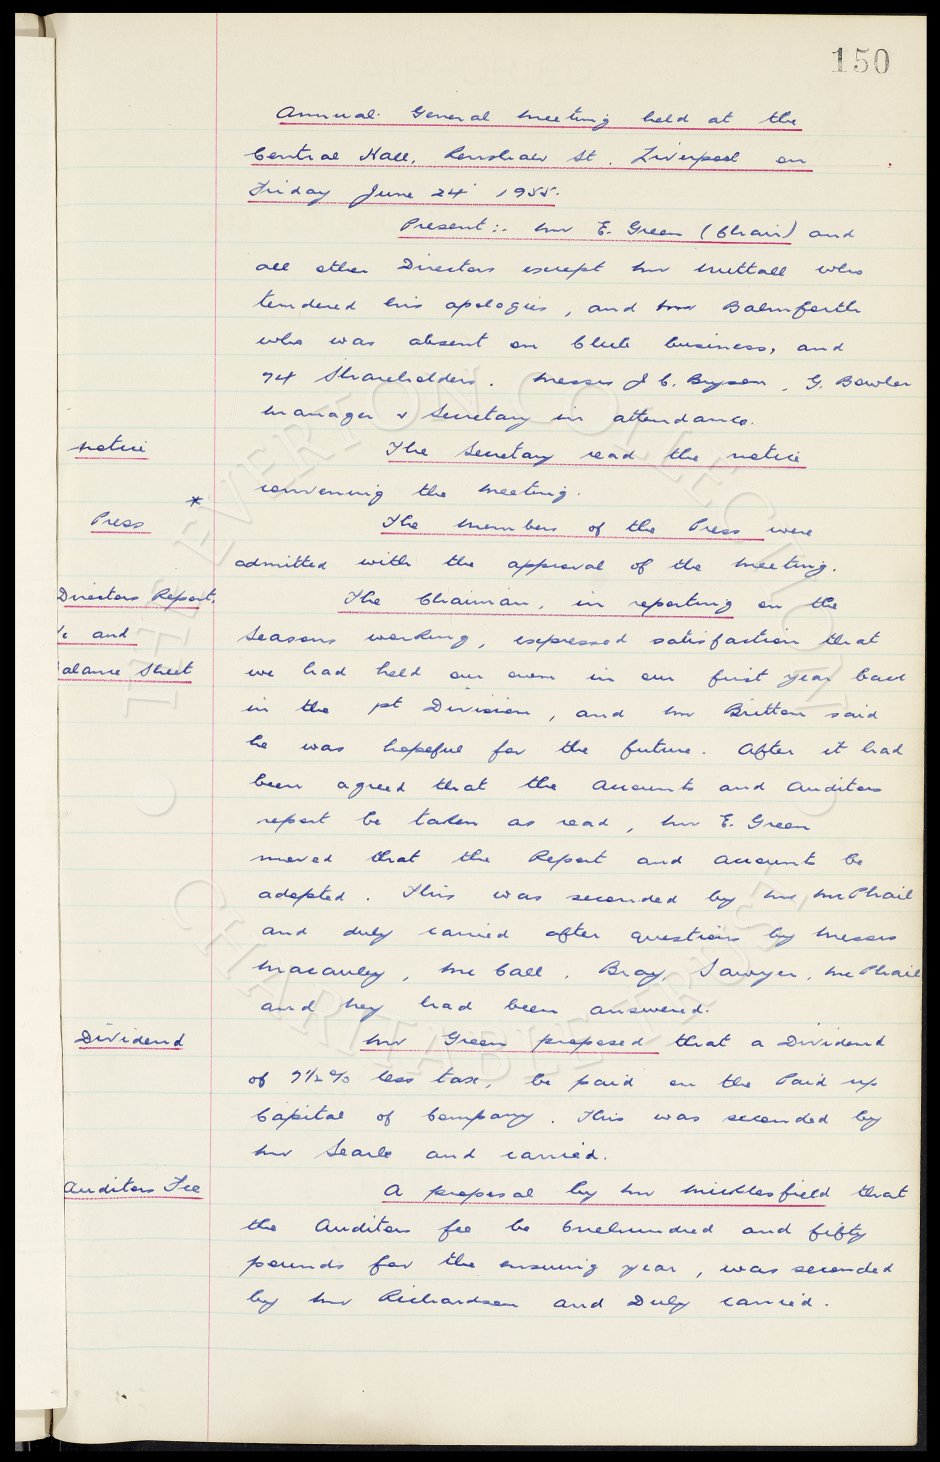 150
Annual General Meeting held at the
Central Hall, Renshaw St. Liverpool on
Friday June 24 1955.
Present:- Mr E. Green (Chair) and
all other Directors except Mr Nuttall who
tendered his apologies, and Mr Balmforth
who was absent on Club business, and
74 Shareholders. Messrs J C. Bryson, G. Bowler
Manager & Secretary in attendance.
Notice
The Secretary read the notice
convening the Meeting.
*
Press
The members of the Press were
admitted with the approval of the Meeting.
Directors Report,
The Chairman, in reporting on the
/c and
Seasons working, expressed satisfaction that
alance Sheet
we had held our own in our first year back
in the 1st Division, and Mr Britton said
he was hopeful for the future. After it had
been agreed that the Accounts and Auditors
report be taken as read, Mr E. Green
moved that the Report and Accounts be
adopted. This was seconded by Mr McPhail
and duly carried after questions by Messrs
Macauley, McCall, Bray, Sawyer, McPhail
and hey had been answered.
Dividend
Mr Green proposed that a Dividend
of 7½% less tax, be paid on the Paid up
Capital of Company. This was seconded by
Mr Searle and carried.
Auditors Fee
A proposal by Mr Micklesfield that
the Auditors fee be Onehundred and fifty
pounds for the ensuing year, was seconded
by Mr Richardson and Duly carried.
THE EVERTON COLLECTION
CHARITABLE TRUST